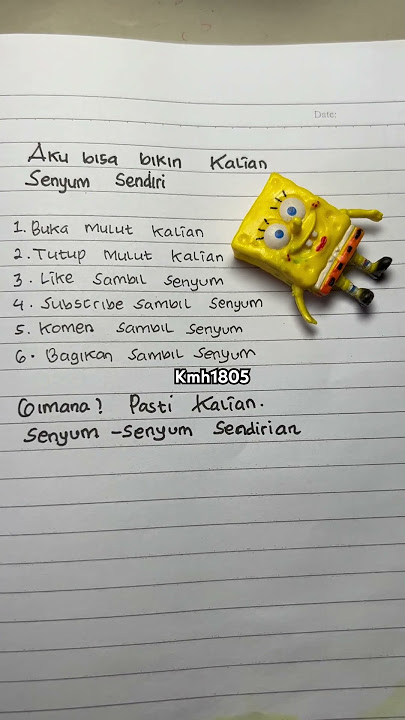 Date:
Aku bisa bikin Kalian
Senyum Sendiri
1. Buka mulut Kalian
2. Tutup Mulut Kalian
3. Like Sambil Senyum
4. Subscribe Sambil Senyum
5. Komen Sambil Senyum
6. Bagikan Sambil Senyum
Kmh1805
Gimana? Pasti Kalian.
Senyum-Senyum Sendirian